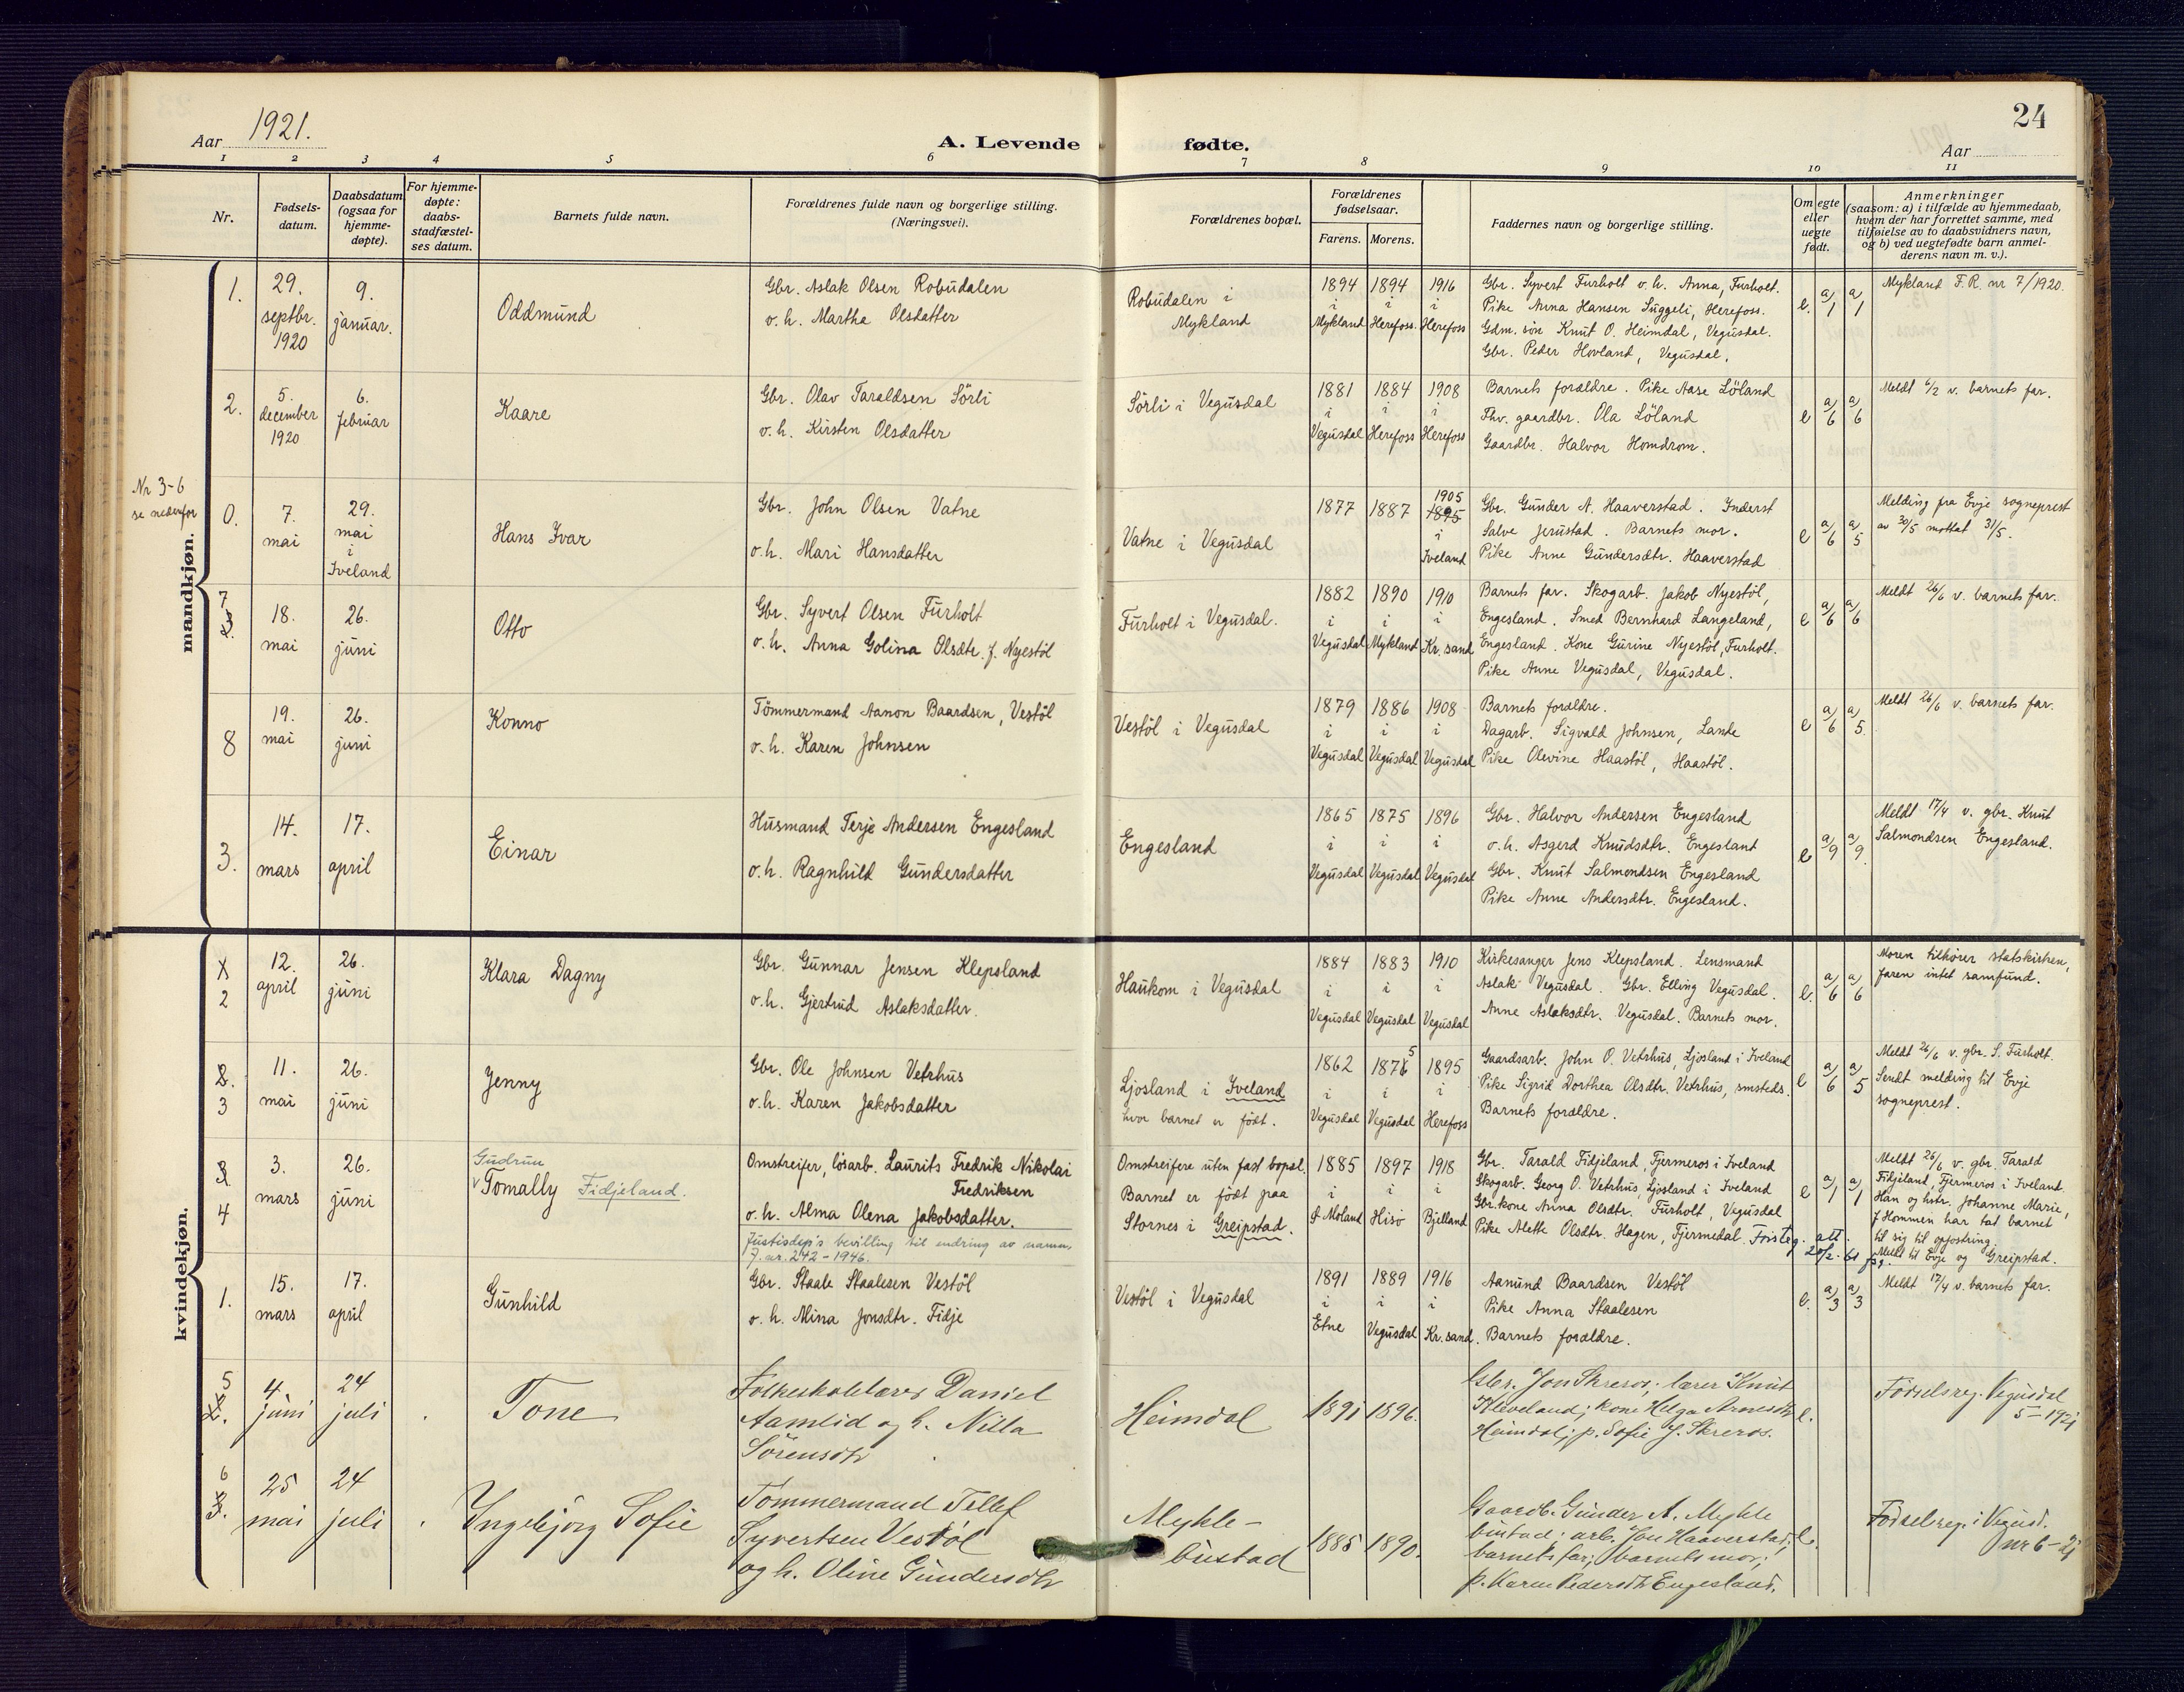 Aar 1921.
A. Levende fødte.
24
Aar
1 2 3 4 5 6 7 8 9 10 11
Nr.
Fødsels-
datum.
Daabsdatum
(ogsaa for
hjemme-
døpte).
For hjemme-
døpte:
daabs-
stadfæstel-
ses datum.
Barnets fulde navn.
Forældrenes fulde navn og borgerlige stilling.
(Næringsvei).
Forældrenes bopæl.
Forældrenes
fødselsaar.
Farens. Morens.
Faddernes navn og borgerlige stilling.
Om egte
eller
uegte
født.
Anmerkninger
(saasom: a) i tilfælde av hjemmedaab,
hvem der har forrettet samme, med
tilføielse av to daabsvidners navn,
og b) ved uegtefødte barn anmel-
derens navn m. v.).
mandkjøn.
Nr 3-6
se nedenfor
1.
29.
septbr.
1920
9.
januar.
Oddmund
Gbr. Aslak Olsen Robudalen
o. h. Martha Olsdatter
Robudalen i
Mykland
1894 1894 1916
i i i
Mykland Herefoss. Herefoss
Gbr. Syvert Furholt o. h. Anna, Furholt.
Pike Anna Hansen Suggeli, Herefoss.
Gdm. søn Knut O. Heimdal, Vegusdal.
Gbr. Peder Hovland, Vegusdal.
e. a/1 a/1
Mykland F. R. nr 7/1920.
2.
5.
december
1920
6.
februar
Kaare
Gbr. Olav Taraldsen Sörli
o. h. Kirsten Olsdatter
Sörli i Vegusdal
1881 1884 1908
i i i
Vegusdal Herefoss Herefoss
Barnets forældre. Pike Aase Löland
Fhv. gaardbr. Ola Löland
Gaardbr. Halvor Homdrom.
e a/6 a/6
Meldt 6/2 v. barnets far.
0.
7.
mai
29.
mai
i
Iveland
Hans Ivar
Gbr. John Olsen Vatne
o. h. Mari Hansdatter
Vatne i Vegusdal
1905
1877 1887 1895
i
Iveland
Gbr. Gunder A. Haaverstad. Inderst
Salve Jerustad. Barnets mor.
Pike Anne Gundersdtr. Haaverstad
e a/6 a/5
Melding fra Evje sogneprest
av 30/5 mottat 31/5.
7
18.
mai
26.
juni
Otto
Gbr. Syvert Olsen Furholt
o. h. Anna Golina Olsdtr. f. Nyestöl
Furholt i Vegusdal.
1882 1890 1910
i i i
Vegusdal Mykland Kr. sand
Barnets far. Skogarb. Jakob Nyestöl,
Engesland. Smed Bernhard Langeland,
Engesland. Kone Gurine Nyestöl, Furholt.
Pike Anne Vegusdal, Vegusdal.
e a/6 a/6
Meldt 26/6 v. barnets far.
8
19.
mai
26.
juni
Konno
Tömmermand Aanon Baardsen, Vestöl
o. h. Karen Johnsen
Vestöl i Vegusdal
1879 1886 1908
i i i
Vegusdal Vegusdal Vegusdal
Barnets forældre.
Dagarb. Sigvald Johnsen, Lande
Pike Olevine Haastöl, Haastöl.
e a/6 a/5.
Meldt 26/6 v. barnets far.
3.
14.
mars
17.
april
Einar
Husmand Terje Andersen Engesland
o. h. Ragnhild Gundersdatter
Engesland
1865 1875 1896
i i i
Vegusdal Vegusdal Vegusdal
Gbr. Halvor Andersen Engesland
o. h. Asgerd Knudsdtr. Engesland
Gbr. Knut Salmondsen Engesland
Pike Anne Andersdtr. Engesland.
e a/9 a/9.
Meldt 17/4 v. gbr. Knut
Salmondsen Engesland.
kvindekjøn.
1
2
12.
april
26.
juni
Klara Dagny
Gbr. Gunnar Jensen Klepsland
o. h. Gjertrud Aslaksdatter.
Haukom i Vegusdal
1884 1883 1910
i i i
Vegusdal Vegusdal Vegusdal
Kirkesanger Jens Klepsland. Lensmand
Aslak Vegusdal. Gbr. Elling Vegusdal.
Anne Aslaksdtr. Vegusdal. Barnets mor.
e. a/6 a/6
Moren tilhører statskirken,
faren intet samfund.
2.
3
11.
mai
26.
juni
Jenny
Gbr. Ole Johnsen Vetrhus
o. h. Karen Jakobsdatter
Ljosland i Iveland
hvor barnet er födt.
1862 1875 1895
i i i
Vegusdal Vegusdal Herefoss
Gaardsarb. John O. Vetrhus, Ljosland i Iveland
Pike Sigrid Dorthea Olsdtr. Vetrhus, smsteds.
Barnets forældre.
e a/6 a/5
Meldt 26/6 v. gbr. S. Furholt.
Sendt melding til Evje
sogneprest.
3.
4
3.
mars
26.
juni
Gudrun
Tomally Fidjeland.
Omstreifer, lösarb. Laurits Fredrik Nikolai
Fredriksen
o. h. Alma Olena Jakobsdatter.
Justisdep's bevilling til endring av namn,
J. nr. 242-1946.
Omstreifere uten fast bopæl.
Barnet er födt paa
Stornes i Greipstad.
1885 1897 1918
i i i
Ø. Moland Hisö Bjelland
Gbr. Tarald Fidjeland, Fjermeros i Iveland
Skogarb. Georg O. Vetrhus, Ljosland i Iveland
Gbr. kone Anna Olsdtr. Furholt, Vegusdal
Pike Alette Olsdtr. Hagen, Fjermedal.
e a/1 a/1
Meldt 26/6 v. gbr. Tarald
Fidjeland, Fjermeros i Iveland.
Han og hstr. Johanne Marie,
f. Hommen har tat barnet
til sig til opfostring.
Meldt til Evje og Greipstad.
1.
15.
mars
17.
april
Gunhild
Gbr. Staale Staalesen Vestöl
o. h. Mina Jonsdtr. Fidje
Vestöl i Vegusdal
1891 1889 1916
i i i
Etne Vegusdal Kr. sand.
Aanund Baardsen Vestöl
Pike Anna Staalesen
Barnets forældre.
e. a/3 a/3
Meldt 17/4 v. barnets far.
5
2.
4.
juni
24
juli
Tone
Folkeskolelærer Daniel
Aamlid og h. Nilla
Sörensdtr
Heimdal
1891 1896.
Gbr. Jon Skreros; lærer Knut
Kleveland; kone Helga Arnesdtr
Heimdal; p. Sofie J. Skreros.
e.
Födselsreg. Vegusdal
5-1921
6
3.
25
mai
24
juli
Ingebjörg Sofie
Tömmermand Tellef
Syvertsen Vestöl
og h. Oline Gundersdtr
Mykle-
bustad
1885 1890.
Gaardb. Gunder A. Mykle
bustad; arb. Jon Haaverstad;
barnets far; barnets mor;
p. Karen Pedersdtr Engesland.
e.
Födselsreg. i Vegusd.
nr 6-21